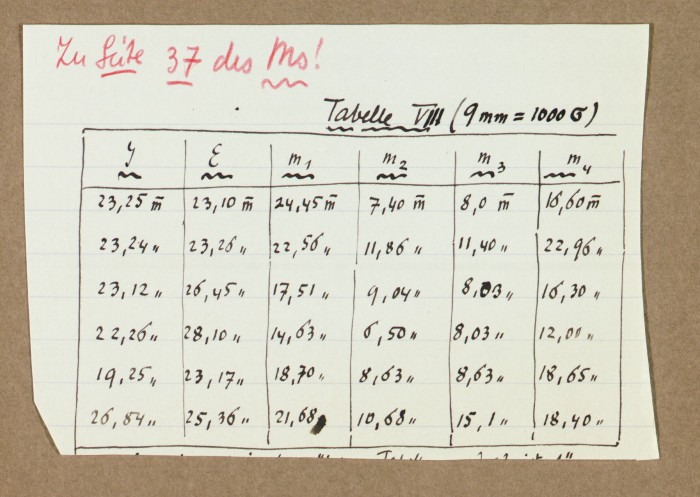 Zu Seite 37 des Ms!
Tabelle VIII (9 mm = 1000 σ)
J E m1 m2 m3 m4
23,25 m̄ 23,10 m̄ 24,45 m̄ 7,40 m̄ 8,0 m̄ 16,60 m̄
23,24 „ 23,26 „ 22,56 „ 11,86 „ 11,40 „ 22,96 „
23,12 „ 26,45 „ 17,51 „ 9,04 „ 8,03 „ 16,30 „
22,26 „ 28,10 „ 14,63 „ 6,50 „ 8,03 „ 12,00 „
19,25 „ 23,17 „ 18,70 „ 8,63 „ 8,63 „ 18,65 „
26,84 „ 25,36 „ 21,68 10,68 „ 15,1 „ 18,40 „